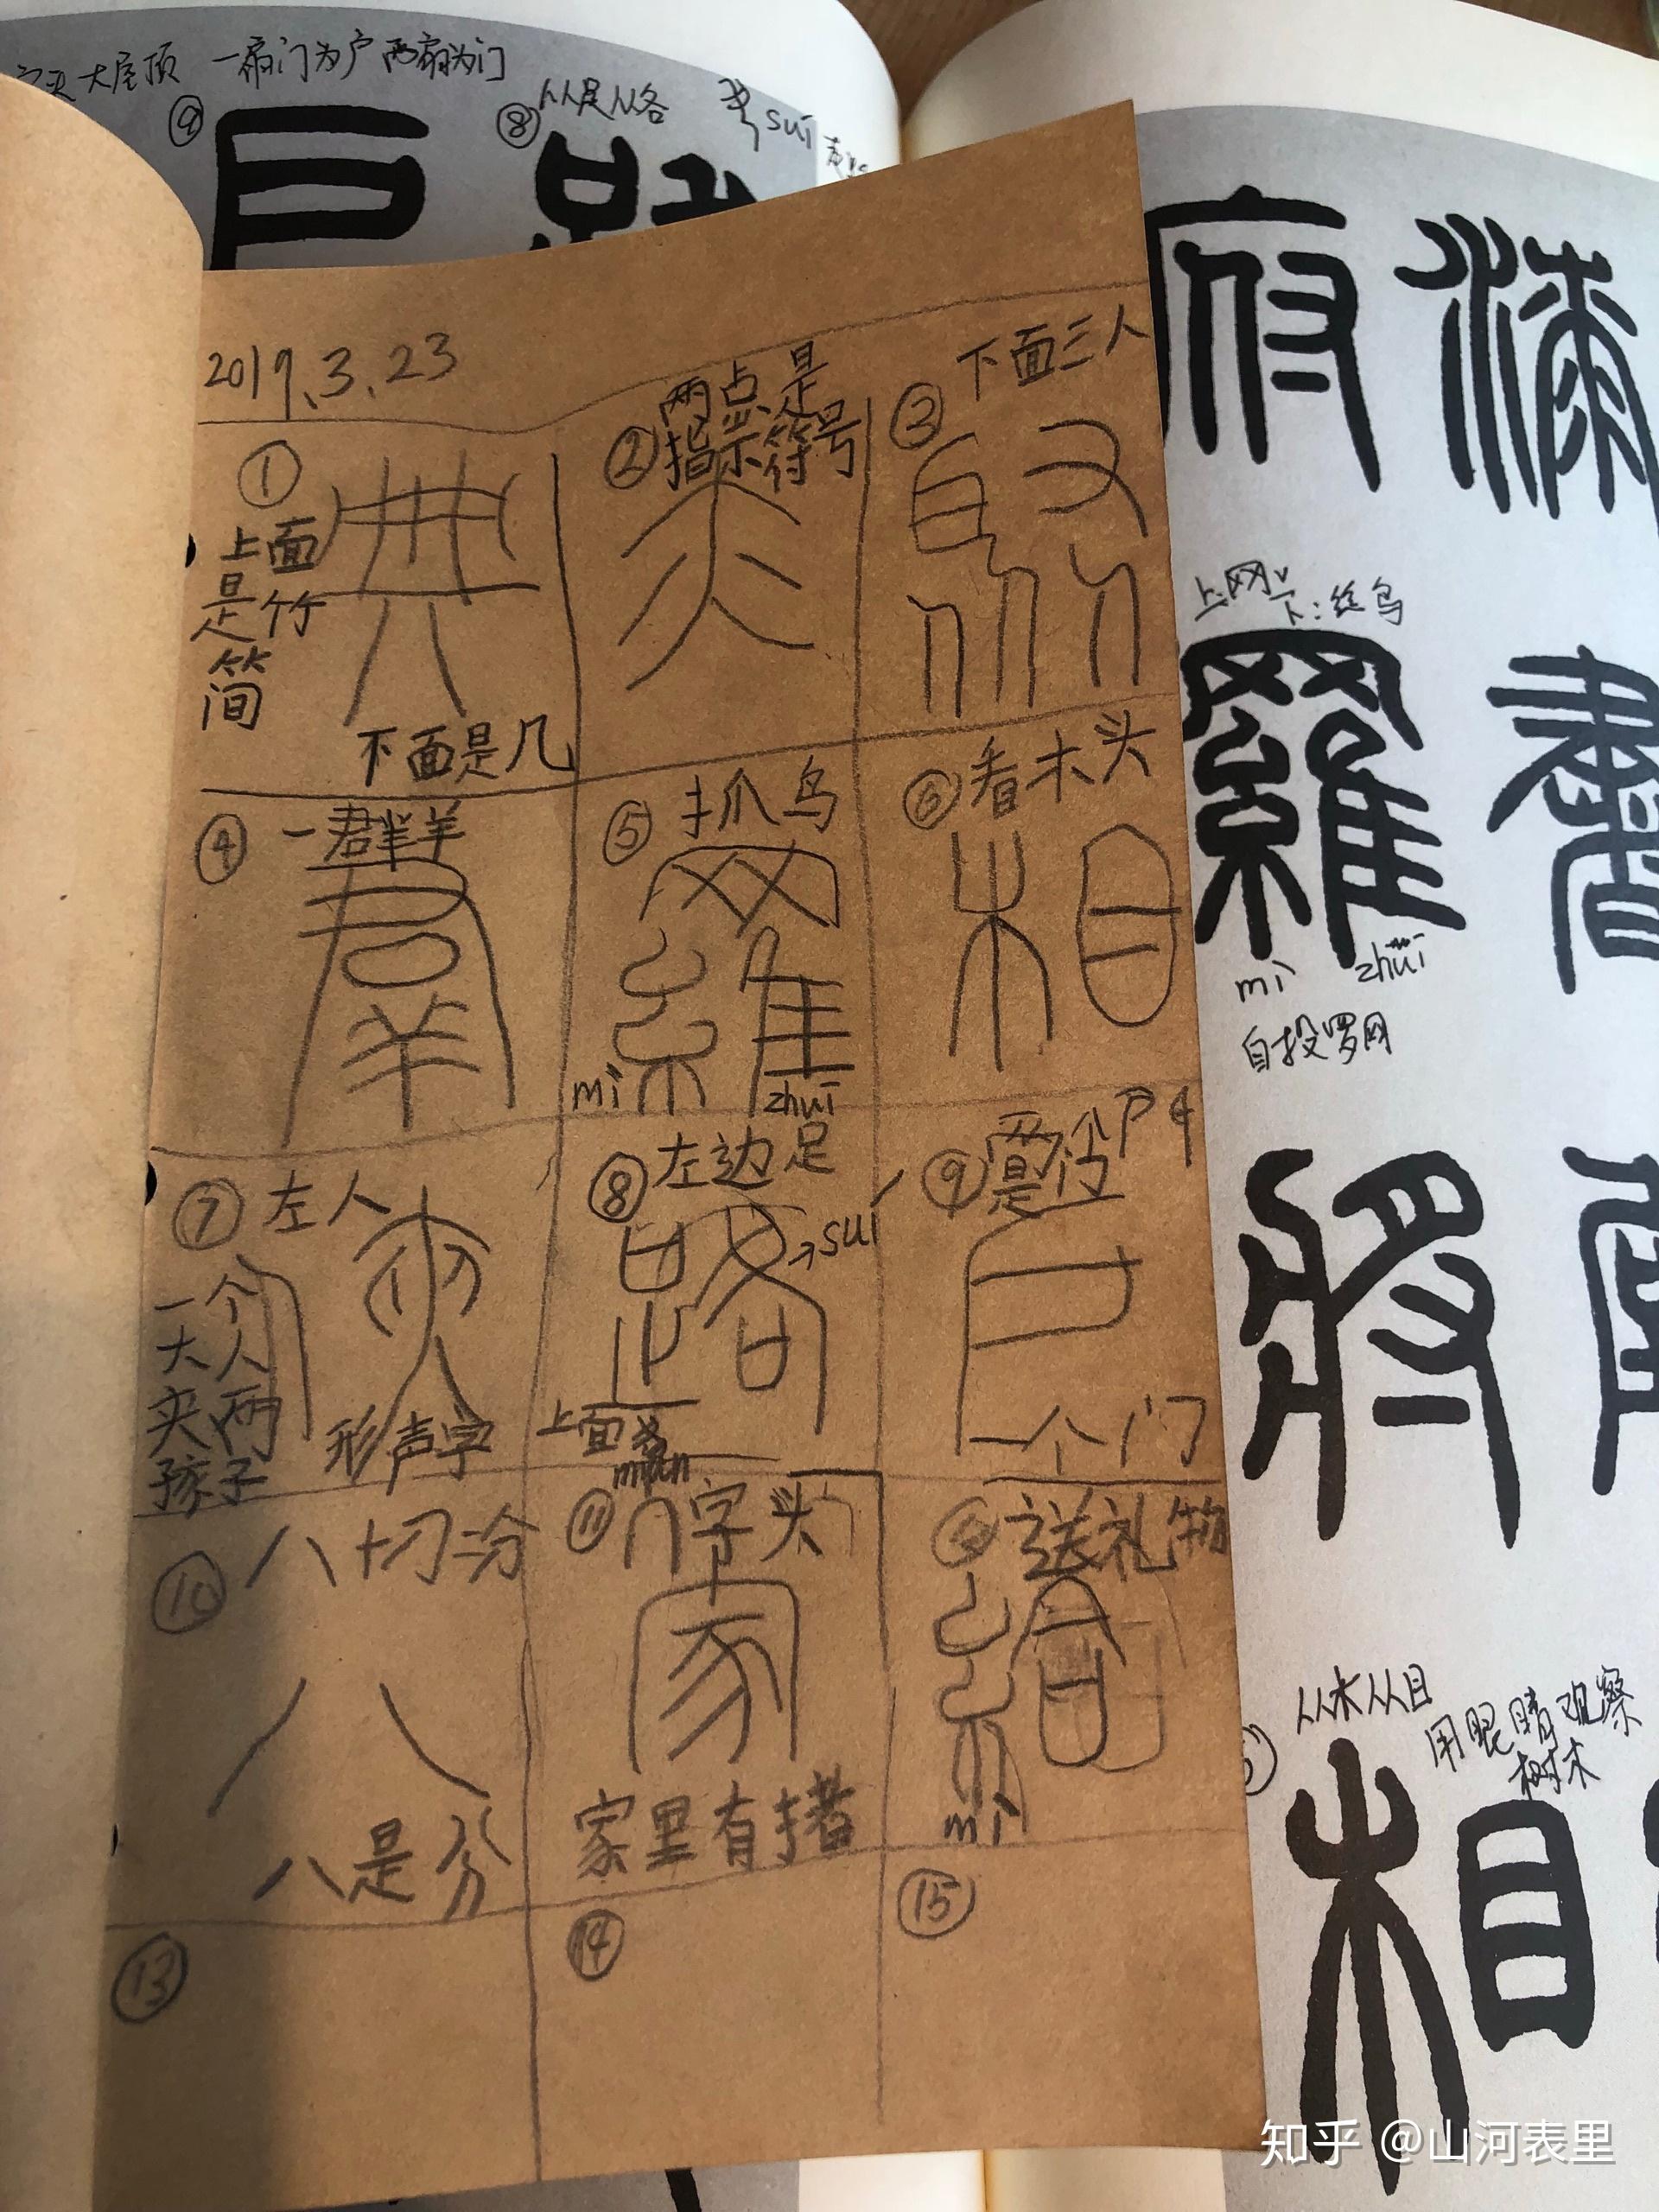 大屋顶 一扇门为户 两扇为门
⑨
⑧ 从足从各
sui
户
路
府
上网
下：丝鸟
羅
mì zhuī
自投罗网
將
从木从目
用眼睛观察
树木
相
2019.3.23
① 上面
是竹
简
典
下面是几
② 两点是
指示符号
亦
③ 下面三人
④ 一群羊
羣
⑤ 抓鸟
羅
mì zhuī
⑥ 看木头
相
⑦ 左人
一个
大人
夹两
孩子
形声字
⑧ 左边足
路
sui
⑨
户
一个门
⑩ 八十刀二分
八
八是分
上面
mian
⑪ 宀字头
家
家里有猪
送礼物
給
mì
⑬
⑭
⑮
知乎 @山河表里